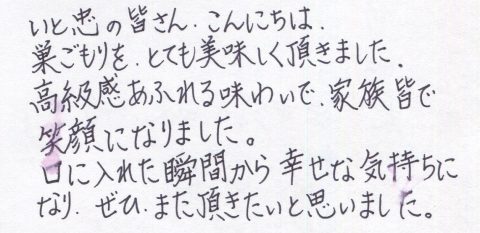 いと忠の皆さん、こんにちは、
巣ごもりを、とても美味しく頂きました、
高級感あふれる味わいで、家族皆で
笑顔になりました。
口に入れた瞬間から幸せな気持ちに
なり、ぜひ、また頂きたいと思いました。